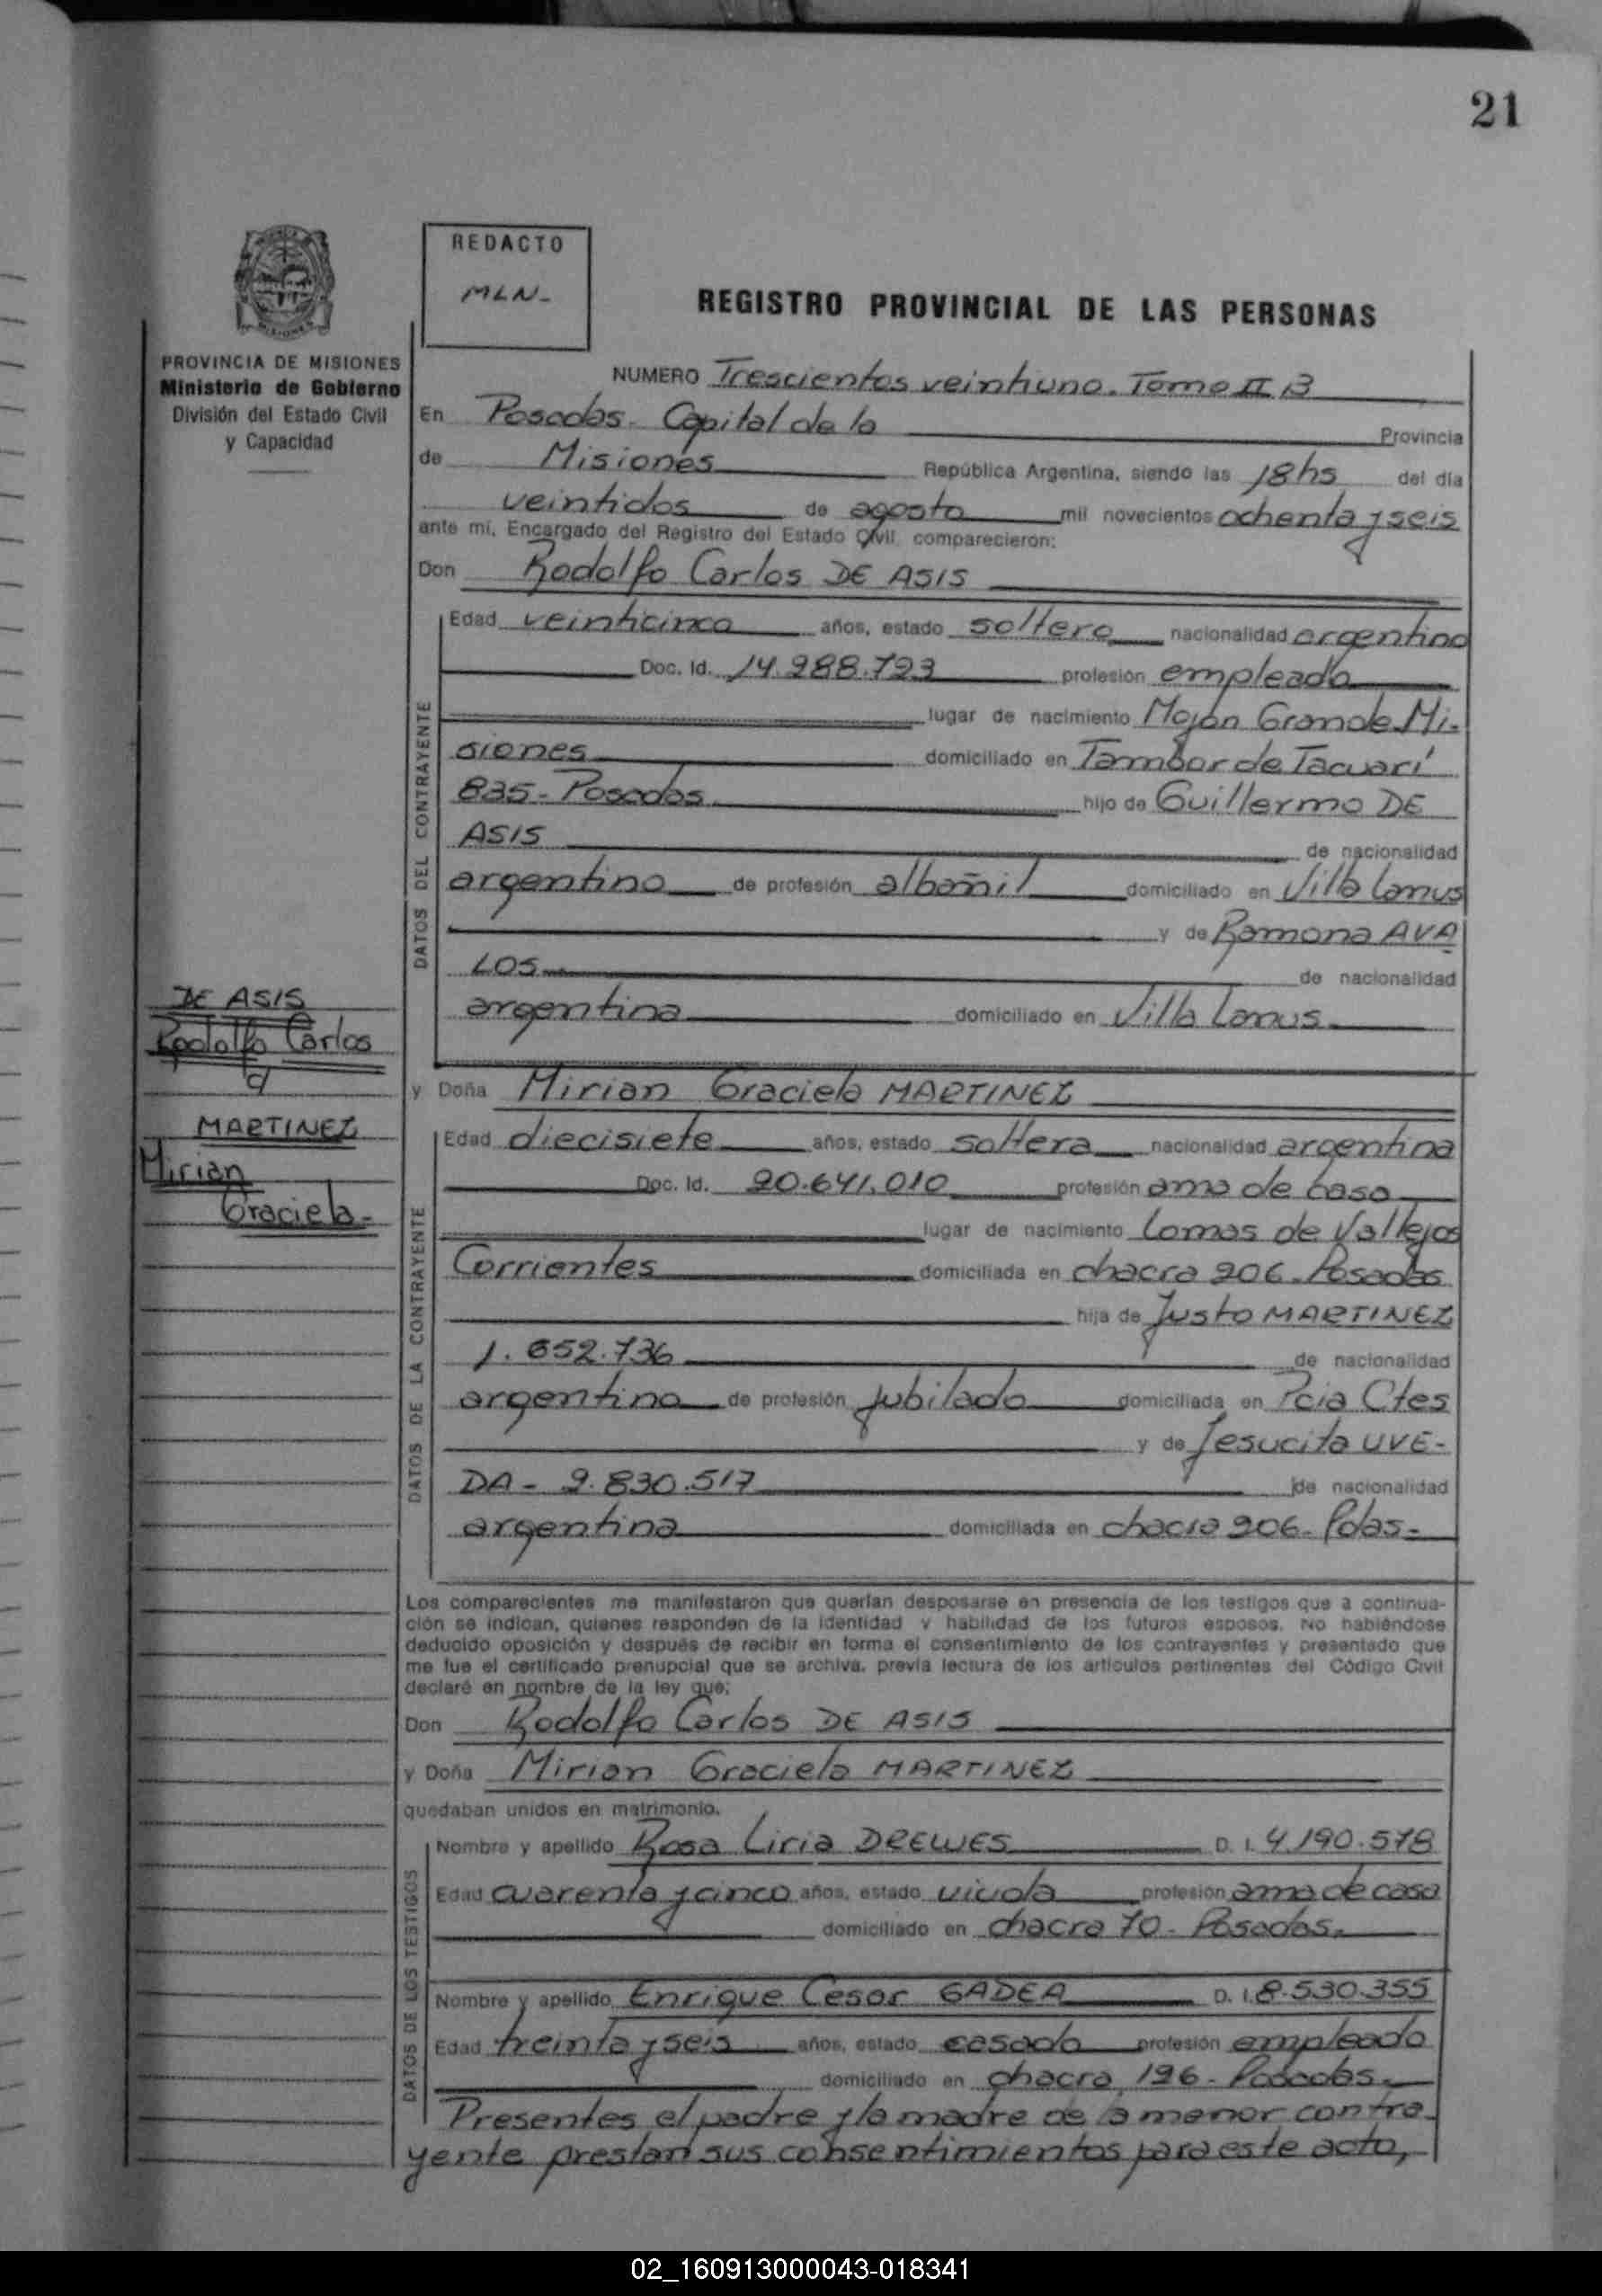 21
REDACTO
MLN-
REGISTRO PROVINCIAL DE LAS PERSONAS
PROVINCIA DE MISIONES
Ministerio de Gobierno
División del Estado Civil
y Capacidad
NUMERO Trescientos veintiuno. Tomo II B
En Posadas. Capital de la Provincia
de Misiones República Argentina, siendo las 18hs del día
veintidos de agosto mil novecientos ochenta y seis
ante mí, Encargado del Registro del Estado Civil comparecieron:
Don Rodolfo Carlos DE ASIS
DATOS DEL CONTRAYENTE
Edad veinticinco años, estado soltero nacionalidad argentino
Doc. Id. 14.288.723 profesión empleado
lugar de nacimiento Mojón Grande Mi-
siones domiciliado en Tambor de Tacuarí
835- Posadas hijo de Guillermo DE
ASIS de nacionalidad
argentino de profesión albañil domiciliado en Villa Lanus
y de Ramona AVA
LOS de nacionalidad
argentina domiciliado en Villa Lanus
DE ASIS
Rodolfo Carlos
MARTINEZ
Mirian
Graciela-
y Doña Mirian Graciela MARTINEZ
DATOS DE LA CONTRAYENTE
Edad diecisiete años, estado soltera nacionalidad argentina
Doc. Id. 20.641.010 profesión ama de casa
lugar de nacimiento Lomas de Vallejos
Corrientes domiciliada en chacra 206. Posadas
hija de Justo MARTINEZ
1.652.736 de nacionalidad
argentino de profesión jubilado domiciliada en Pcia Ctes
y de Jesucita UVE-
DA - 9.830.517 de nacionalidad
argentina domiciliada en chacra 206- Pdas-
Los comparecientes me manifestaron que querían desposarse en presencia de los testigos que a continua-
ción se indican, quienes responden de la identidad y habilidad de los futuros esposos. No habiéndose
deducido oposición y después de recibir en forma el consentimiento de los contrayentes y presentado que
me fue el certificado prenupcial que se archiva, previa lectura de los artículos pertinentes del Código Civil
declaré en nombre de la ley que:
Don Rodolfo Carlos DE ASIS
y Doña Mirian Graciela MARTINEZ
quedaban unidos en matrimonio.
DATOS DE LOS TESTIGOS
Nombre y apellido Rosa Liria DREWES D. I. 4.190.578
Edad cuarenta y cinco años, estado viuda profesión ama de casa
domiciliado en chacra 70- Posadas.
Nombre y apellido Enrique Cesar GADEA D. I. 8.530.355
Edad treinta y seis años, estado casado profesión empleado
domiciliado en chacra 196- Posadas.
Presentes el padre y la madre de la menor contra-
yente prestan sus consentimientos para este acto,
02_160913000043-018341